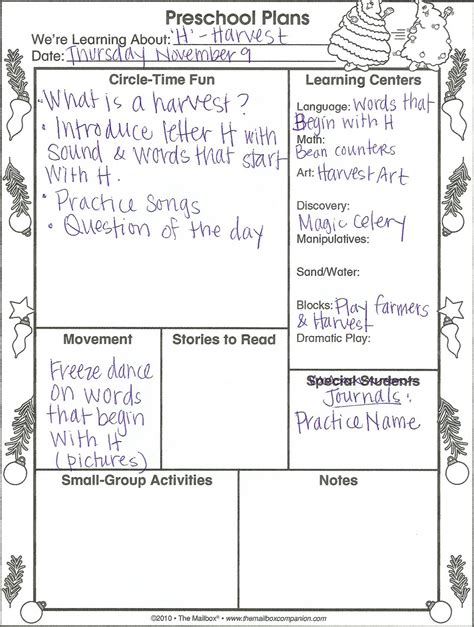 Preschool Plans
We're Learning About: 'H' - Harvest
Date: Thursday November 9
Circle-Time Fun
• What is a harvest?
• Introduce letter H with
Sound & words that start
with H.
• Practice Songs
• Question of the day
Learning Centers
Language: Words that
Begin with H
Math:
Bean counters
Art: Harvest Art
Discovery:
Magic Celery
Manipulatives:
Sand/Water:
Blocks: Play farmers
& Harvest
Dramatic Play:
Movement
Freeze dance
on words
that begin
with H
(pictures)
Stories to Read
Special Students
Journals:
Practice Name
Small-Group Activities
Notes
©2010 • The Mailbox® • www.themailboxcompanion.com